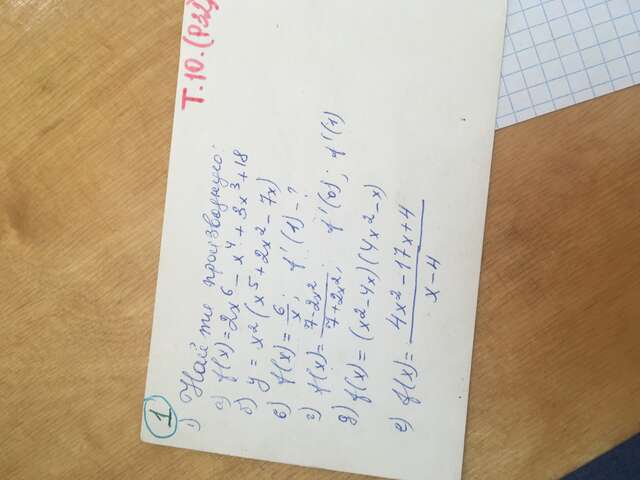 1
Т.10.(Р22)
1) Найти производную:
а) f(x)=2x⁶ - x⁴ + 3x³ + 18
б) y = x² (x⁵ + 2x² - 7x)
в) f(x) = 6/x; f'(1) - ?
г) f(x) = (7-2x²)/(7+2x²); f'(0); f'(1)
д) f(x) = (x²-4x)(4x²-x)
е) f(x) = (4x²-17x+4)/(x-4)